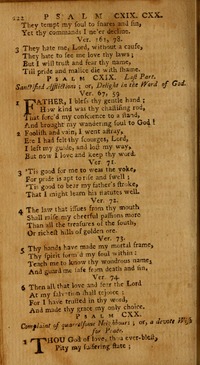 222 P S A L M CXIX, CXX.
They tempt my soul to snares and sin,
Yet thy commands I ne'er decline.
Ver. 161, 78.
3 They hate me, Lord, without a cause,
They hate to see me love thy laws;
But I will trust and fear thy name,
Till pride and malice die with shame.
PSALM CXIX. Last Part.
Sanctified Afflictions; or, Delight in the Word of God.
Ver. 67, 59
1 FATHER, I bless thy gentle hand;
How kind was thy chastising rod,
That forc'd my conscience to a stand,
And brought my wandering soul to God!
2 Foolish and vain, I went astray,
Ere I had felt thy scourges, Lord,
I left my guide, and lost my way,
But now I love and keep thy word.
Ver. 71.
3 'Tis good for me to wear the yoke,
For pride is apt to rise and swell;
'Tis good to bear my father's stroke,
That I might learn his statutes well.
Ver. 72.
4 The law that issues from thy mouth
Shall raise my cheerful passions more
Than all the treasures of the south,
Or richest hills of golden ore.
Ver. 73.
5 Thy hands have made my mortal frame,
Thy spirit form'd my soul within:
Teach me to know thy wondrous name,
And guard me safe from death and sin,
Ver. 74.
6 Then all that love and fear the Lord
At my salvation shall rejoice;
For I have trusted in thy word,
And made thy grace my only choice.
PSALM CXX.
Complaint of quarrelsome Neighbours; or, a devout Wish
for Peace.
THOU God of love, thou ever-blest,
Pity my suffering state;